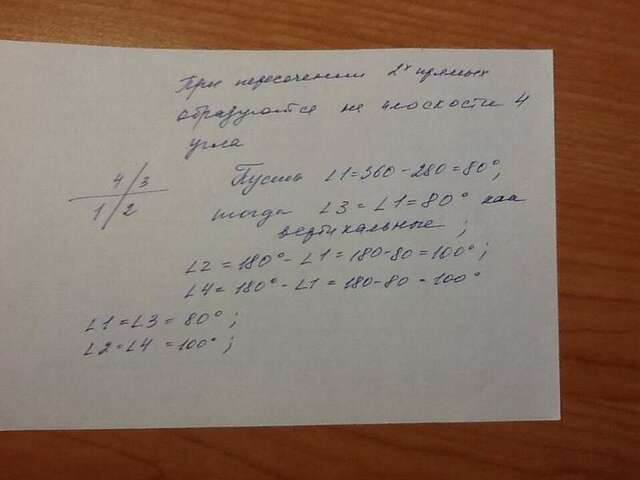 При пересечении 2х прямых
образуются на плоскости 4
угла
4 3
1 2
Пусть ∠1=360-280=80°,
тогда ∠3=∠1=80° как
вертикальные;
∠2=180°-∠1=180-80=100°;
∠4=180°-∠1=180-80=100°
∠1=∠3=80°;
∠2=∠4=100°;